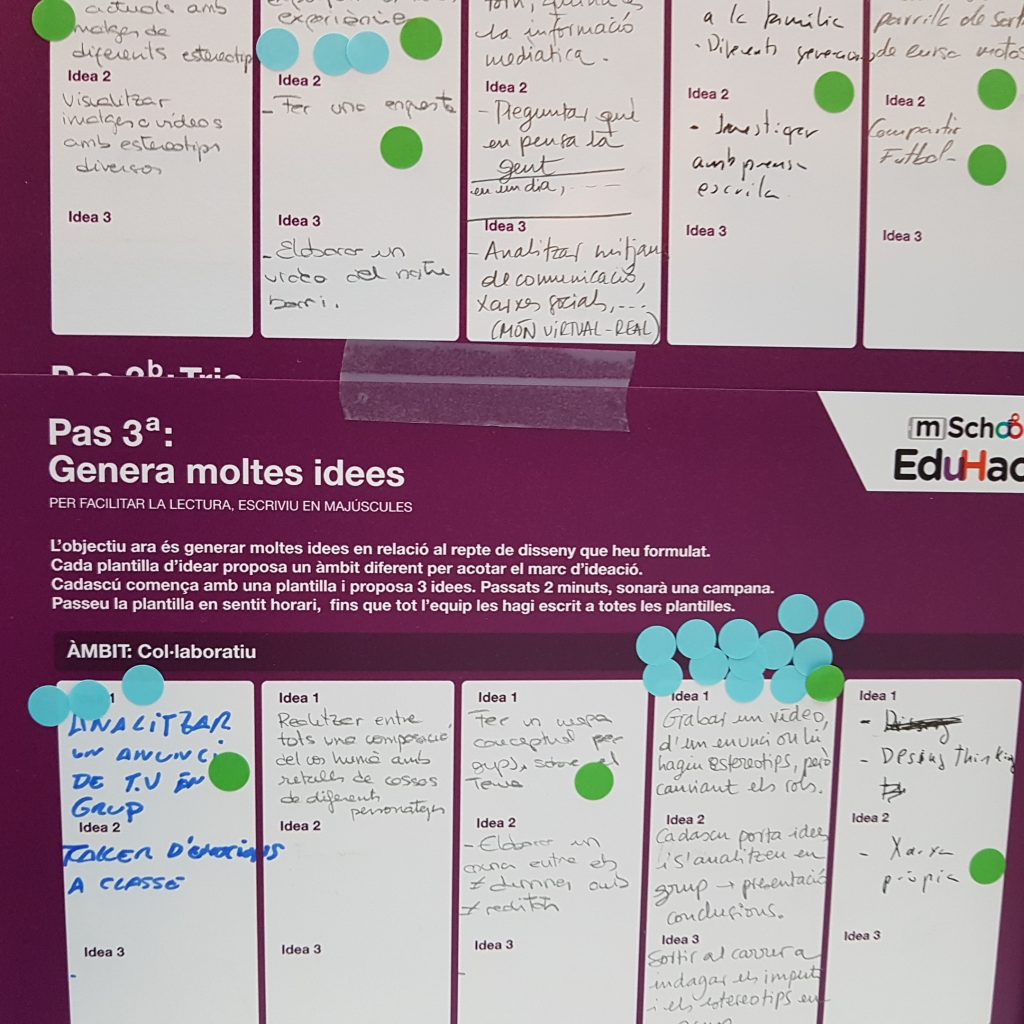 actuals amb
imatges de
diferents estereotips
Idea 2
Visualitzar
imatges o vídeos
amb estereotips
diversos
Idea 3
experiència
Idea 2
- Fer una enquesta
Idea 3
- Elaborar un
vídeo del nostre
barri.
la informació
mediatica.
Idea 2
- Preguntar què
en pensa la
gent
en un dia, ----
Idea 3
- Analitzar mitjans
de comunicació,
xarxes socials, ...
(MÓN VIRTUAL-REAL)
a la família
- Diferents generacions
Idea 2
- Investigar
amb premsa
escrita.
Idea 3
parrilla de sort
de cursa motos
Idea 2
Compartir
Futbol-
Idea 3
Pas 3ª:
Genera moltes idees
PER FACILITAR LA LECTURA, ESCRIVIU EN MAJÚSCULES
mSchoo
EduHac
L'objectiu ara és generar moltes idees en relació al repte de disseny que heu formulat.
Cada plantilla d'idear proposa un àmbit diferent per acotar el marc d'ideació.
Cadascú comença amb una plantilla i proposa 3 idees. Passats 2 minuts, sonarà una campana.
Passeu la plantilla en sentit horari, fins que tot l'equip les hagi escrit a totes les plantilles.
ÀMBIT: Col·laboratiu
1
ANALITZAR
UN ANUNCI
DE T.V EN
GRUP
Idea 2
TALLER D'EMOCIONS
A CLASSE
Idea 3
Idea 1
Realitzar entre
tots una composició
del cos humà amb
retalls de cossos
de diferents
personatges
Idea 2
Idea 3
Idea 1
Fer un mapa
conceptual per
grups, sobre el
Tema
Idea 2
- Elaborar un
entre els
≠ amb
≠
Idea 3
Idea 1
Grabar un vídeo,
d'un anunci on hi
hagin estereotips, però
canviant els rols.
Idea 2
Cadascú porta idees
i s'analitzen en
grup → presentació
conclusions.
Idea 3
Sortir al carrer a
indagar els
i els estereotips en
Idea 1
- Dessing thinking
Idea 2
- Xarxa
pròpia
Idea 3